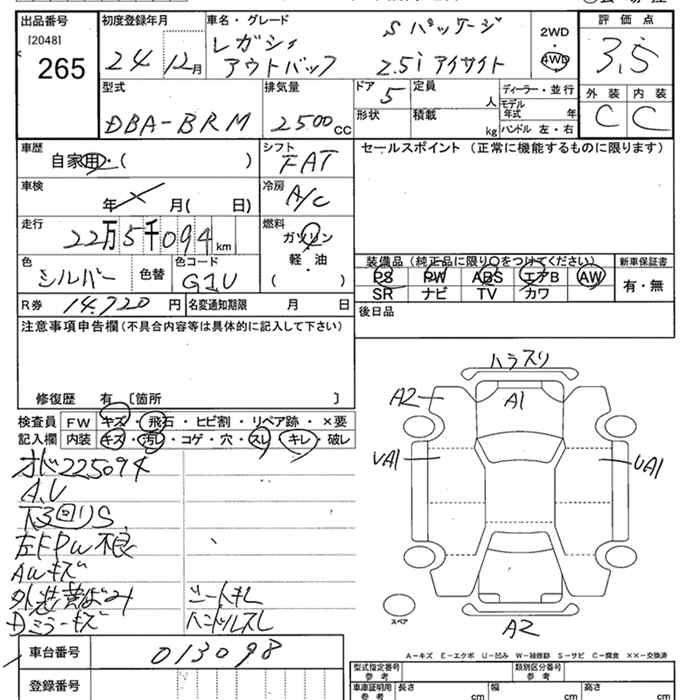 出品番号 初度登録年月 車名・グレード Sパッケージ 2WD 評価点
[2048] 265 24 12月 レガシィ 4WD 3.5
アウトバック 2.5i アイサイト 外装 内装
型式 排気量 ドア 5 定員 人 ディーラー・並行 C C
DBA-BRM 2500cc 形状 積載 kg モデル年式 年
ハンドル 左・右
車歴 シフト セールスポイント (正常に機能するものに限ります)
自家用・( ) FAT
車検 冷房
年 月( 日) A/C
走行 燃料
22万5千094km ガソリン
軽・油
( )
装備品 (純正品に限り○をつけてください) 新車保証書
色 カラーコード PS PW ABS エアB AW 有・無
シルバー 色替 G1U SR ナビ TV カワ
R券 14.720円 名変通知期限 月 日 後日品
注意事項申告欄(不具合内容等は具体的に記入して下さい)
修復歴 有 〔箇所 〕
検査員 FW キズ・飛石・ヒビ割・リペア跡・×要
記入欄 内装 キズ・汚レ・コゲ・穴・スレ・キレ・破レ
オド225094
A.U
下3回りS
左FPW不良
AWキズ
外装黄ばみ シートキレ
Dミラーキズ ハンドルスレ
車台番号 013098
登録番号
ハラスリ
A2 A1
UA1 UA1
スペア
A2
A-キズ E-エクボ U-凹ミ W-補修跡 S-サビ C-腐食 ××-交換済
型式指定番号 参考 類別区分番号 参考
車車証明用 参考 長さ cm 幅 cm 高さ cm